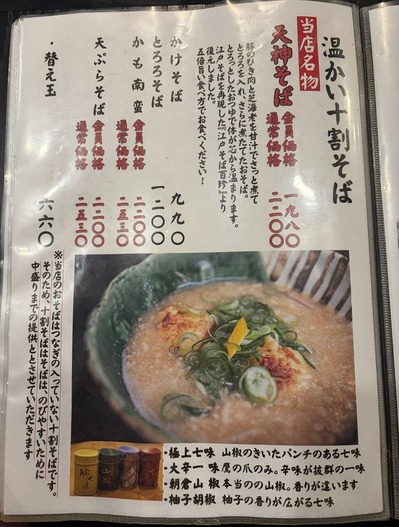 温かい十割そば
当店名物
天神そば
会員価格 一九八〇
通常価格 二二〇〇
豚のひき肉と芝海老を甘汁でさっと煮て
とろろを入れ、さらに煮たてたおそば。
とろっとしたおつゆで体が心から温まります。
江戸そばを再現した『江戸そば百珍』より
復元しました。
五倍旨い食べ方でお食べください！
かけそば 九九〇
とろろそば 一二〇〇
かも南蛮
会員価格 二二〇〇
通常価格 二五三〇
天ぷらそば
会員価格 二二〇〇
通常価格 二五三〇
・替え玉 六六〇
※当店のおそばはつなぎのへっていない十割そばです。
そのため、十割そばはそばは、のびやすいために
中盛りまでの提供ととさせていただきます
・極上七味 山椒のきいたパンチのある七味
・大辛一味 屋の爪のみ。辛味が抜群の一味
・朝倉山椒 本当のの山椒。香りが違います
・柚子胡椒 柚子の香りが広がる七味